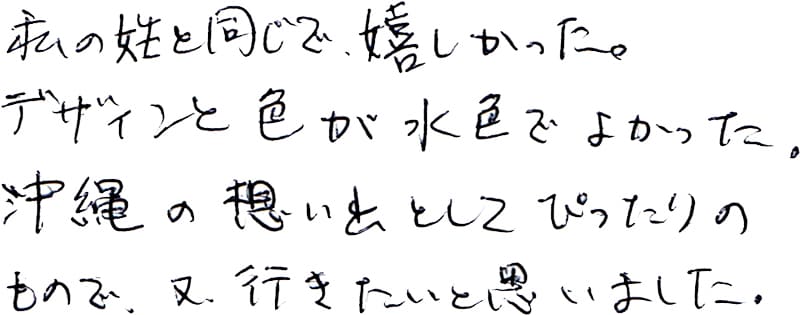 私の姓と同じで、嬉しかった。
デザインと色が水色でよかった。
沖縄の想い出としてぴったりの
もので、又、行きたいと思いました。